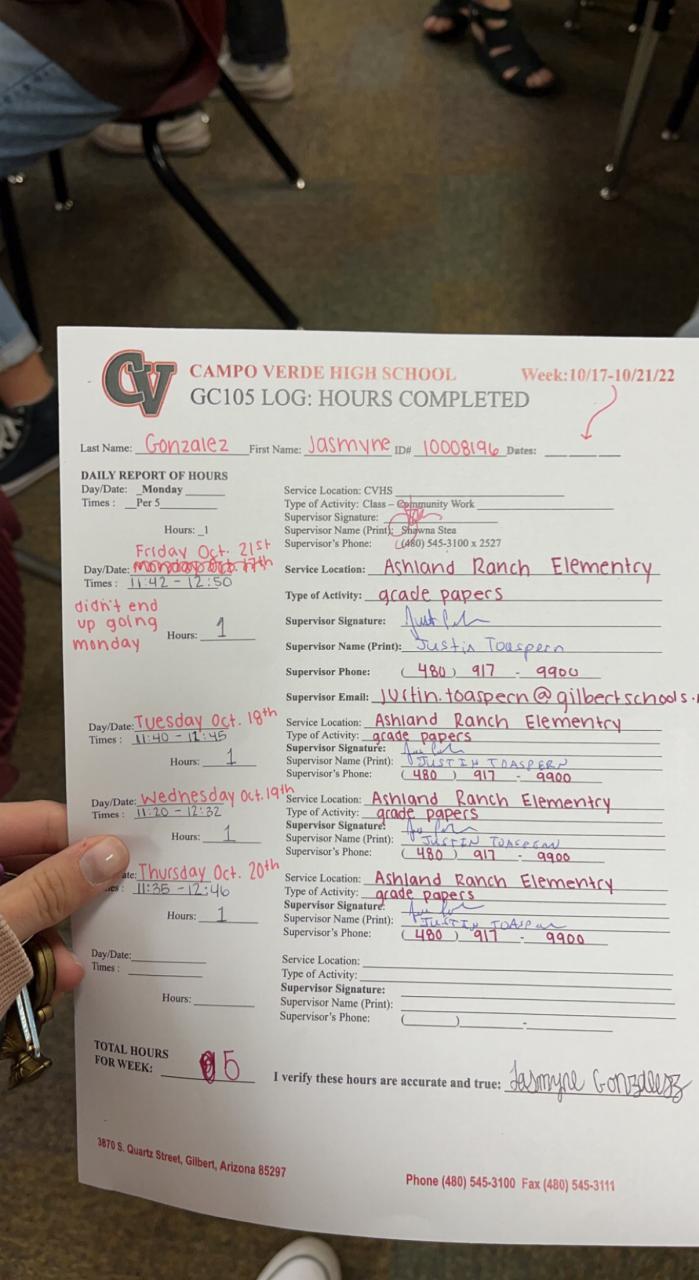 CV CAMPO VERDE HIGH SCHOOL Week:10/17-10/21/22
GC105 LOG: HOURS COMPLETED
Last Name: Gonzalez First Name: Jasmyne ID# 10008196 Dates:
DAILY REPORT OF HOURS
Day/Date: Monday
Times : Per 5
Hours: 1
Service Location: CVHS
Type of Activity: Class – Community Work
Supervisor Signature:
Supervisor Name (Print): Shawna Stea
Supervisor's Phone: (480) 545-3100 x 2527
Friday Oct. 21st
Day/Date: monday oct 17th
Times : 11:42 - 12:50
didn't end
up going
monday
Hours: 1
Service Location: Ashland Ranch Elementry
Type of Activity: grade papers
Supervisor Signature:
Supervisor Name (Print): Justin Toaspern
Supervisor Phone: (480) 917 - 9900
Supervisor Email: justin.toaspern@gilbertschools.
Day/Date: Tuesday Oct. 18th
Times : 11:40 - 12:45
Hours: 1
Service Location: Ashland Ranch Elementry
Type of Activity: grade papers
Supervisor Signature:
Supervisor Name (Print): JUSTIN TOASPERN
Supervisor's Phone: (480) 917 - 9900
Day/Date: Wednesday Oct. 19th
Times : 11:20 - 12:32
Hours: 1
Service Location: Ashland Ranch Elementry
Type of Activity: grade papers
Supervisor Signature:
Supervisor Name (Print): JUSTIN TOASPERN
Supervisor's Phone: (480) 917 - 9900
ate: Thursday Oct. 20th
es : 11:35 - 12:46
Hours: 1
Service Location: Ashland Ranch Elementry
Type of Activity: grade papers
Supervisor Signature:
Supervisor Name (Print): JUSTIN
Supervisor's Phone: (480) 917 - 9900
Day/Date:
Times :
Hours:
Service Location:
Type of Activity:
Supervisor Signature:
Supervisor Name (Print):
Supervisor's Phone: ( ) -
TOTAL HOURS
FOR WEEK: 5
I verify these hours are accurate and true: Jasmyne Gonzalez
3870 S. Quartz Street, Gilbert, Arizona 85297
Phone (480) 545-3100 Fax (480) 545-3111